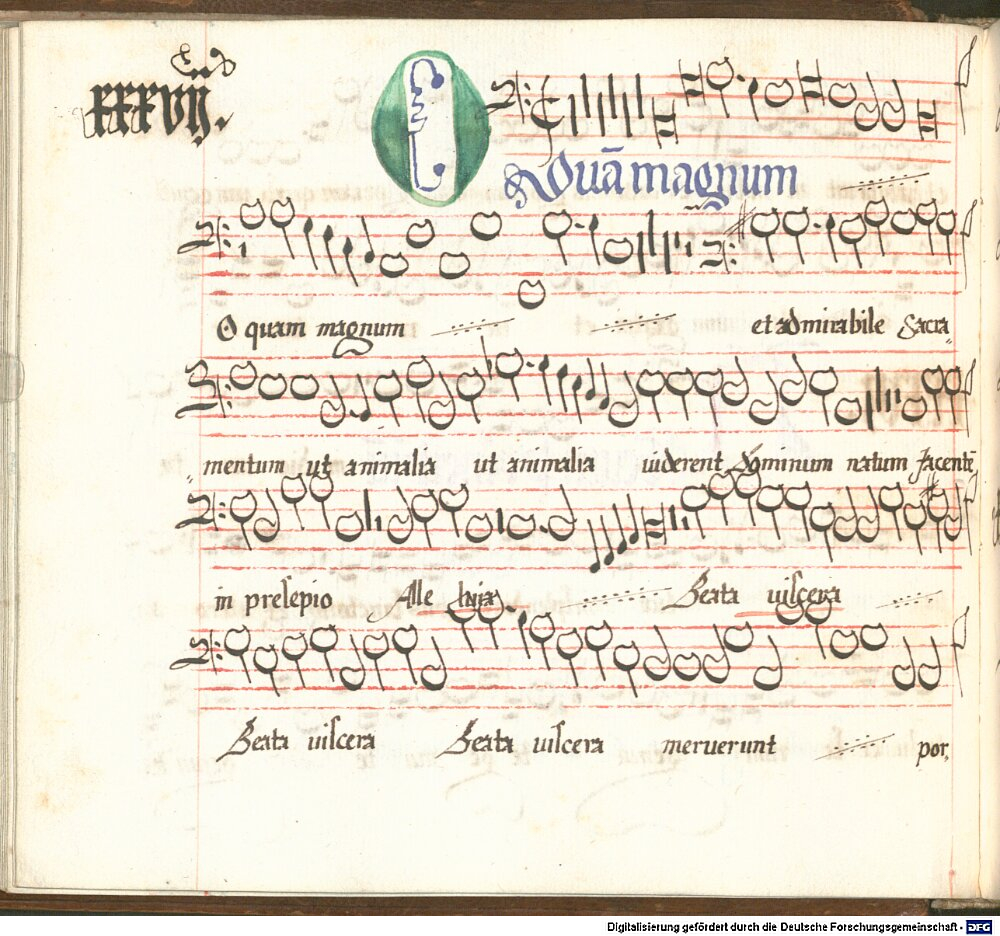 XXXVIJ.
O Quā magnum
O quam magnum et admirabile Sacra„
„mentum ut animalia ut animalia uiderent Dominum natum Jacentē
in presepio Alle luia Beata uiscera
Beata uiscera Beata uiscera meruerunt por„
Digitalisierung gefördert durch die Deutsche Forschungsgemeinschaft - DFG